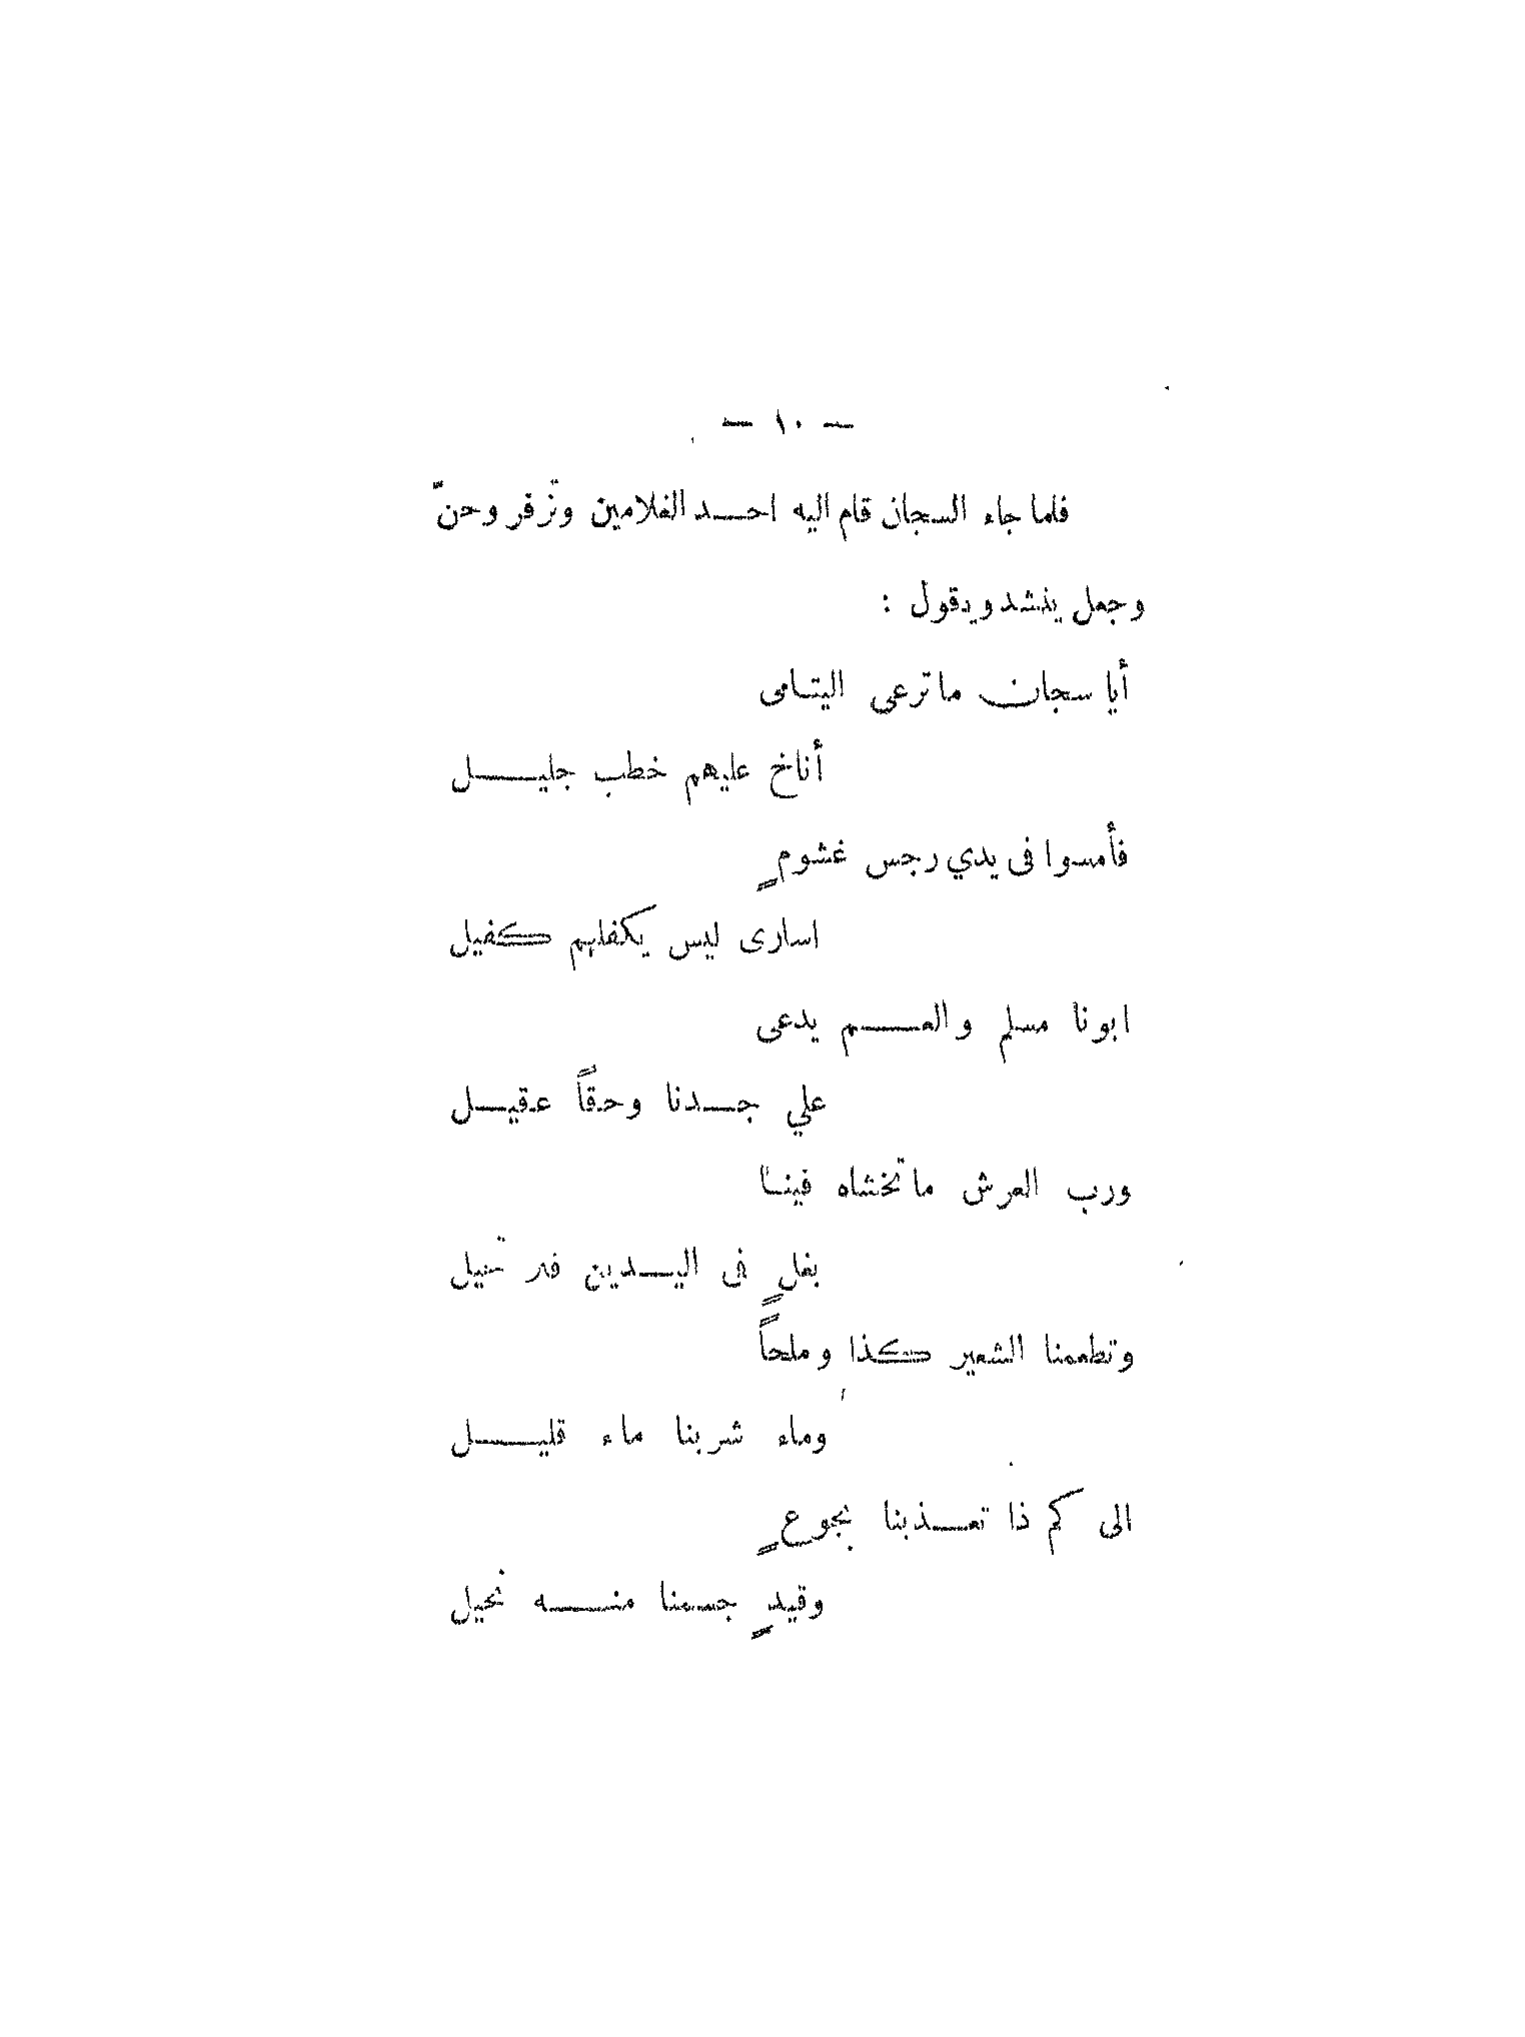 — ١٠ —
فلما جاء السجان قام اليه احد الغلامين وتزفر وحنّ
وجعل ينشد ويقول :
أيا سجان ما ترعى اليتامى
أناخ عليهم خطب جليل
فأمسوا فى يدي رجس غشومٍ
اسارى ليس يكفلهم كفيل
ابونا مسلم والعم يدعى
علي جدنا وحقاً عقيل
ورب العرش ما تخشاه فينا
بغلٍ فى اليدين
وتطعمنا الشعير كذا وملحاً
وماء شربنا ماء قليل
الى كم ذا تعذبنا بجوعٍ
وقيدٍ جسمنا منه نحيل